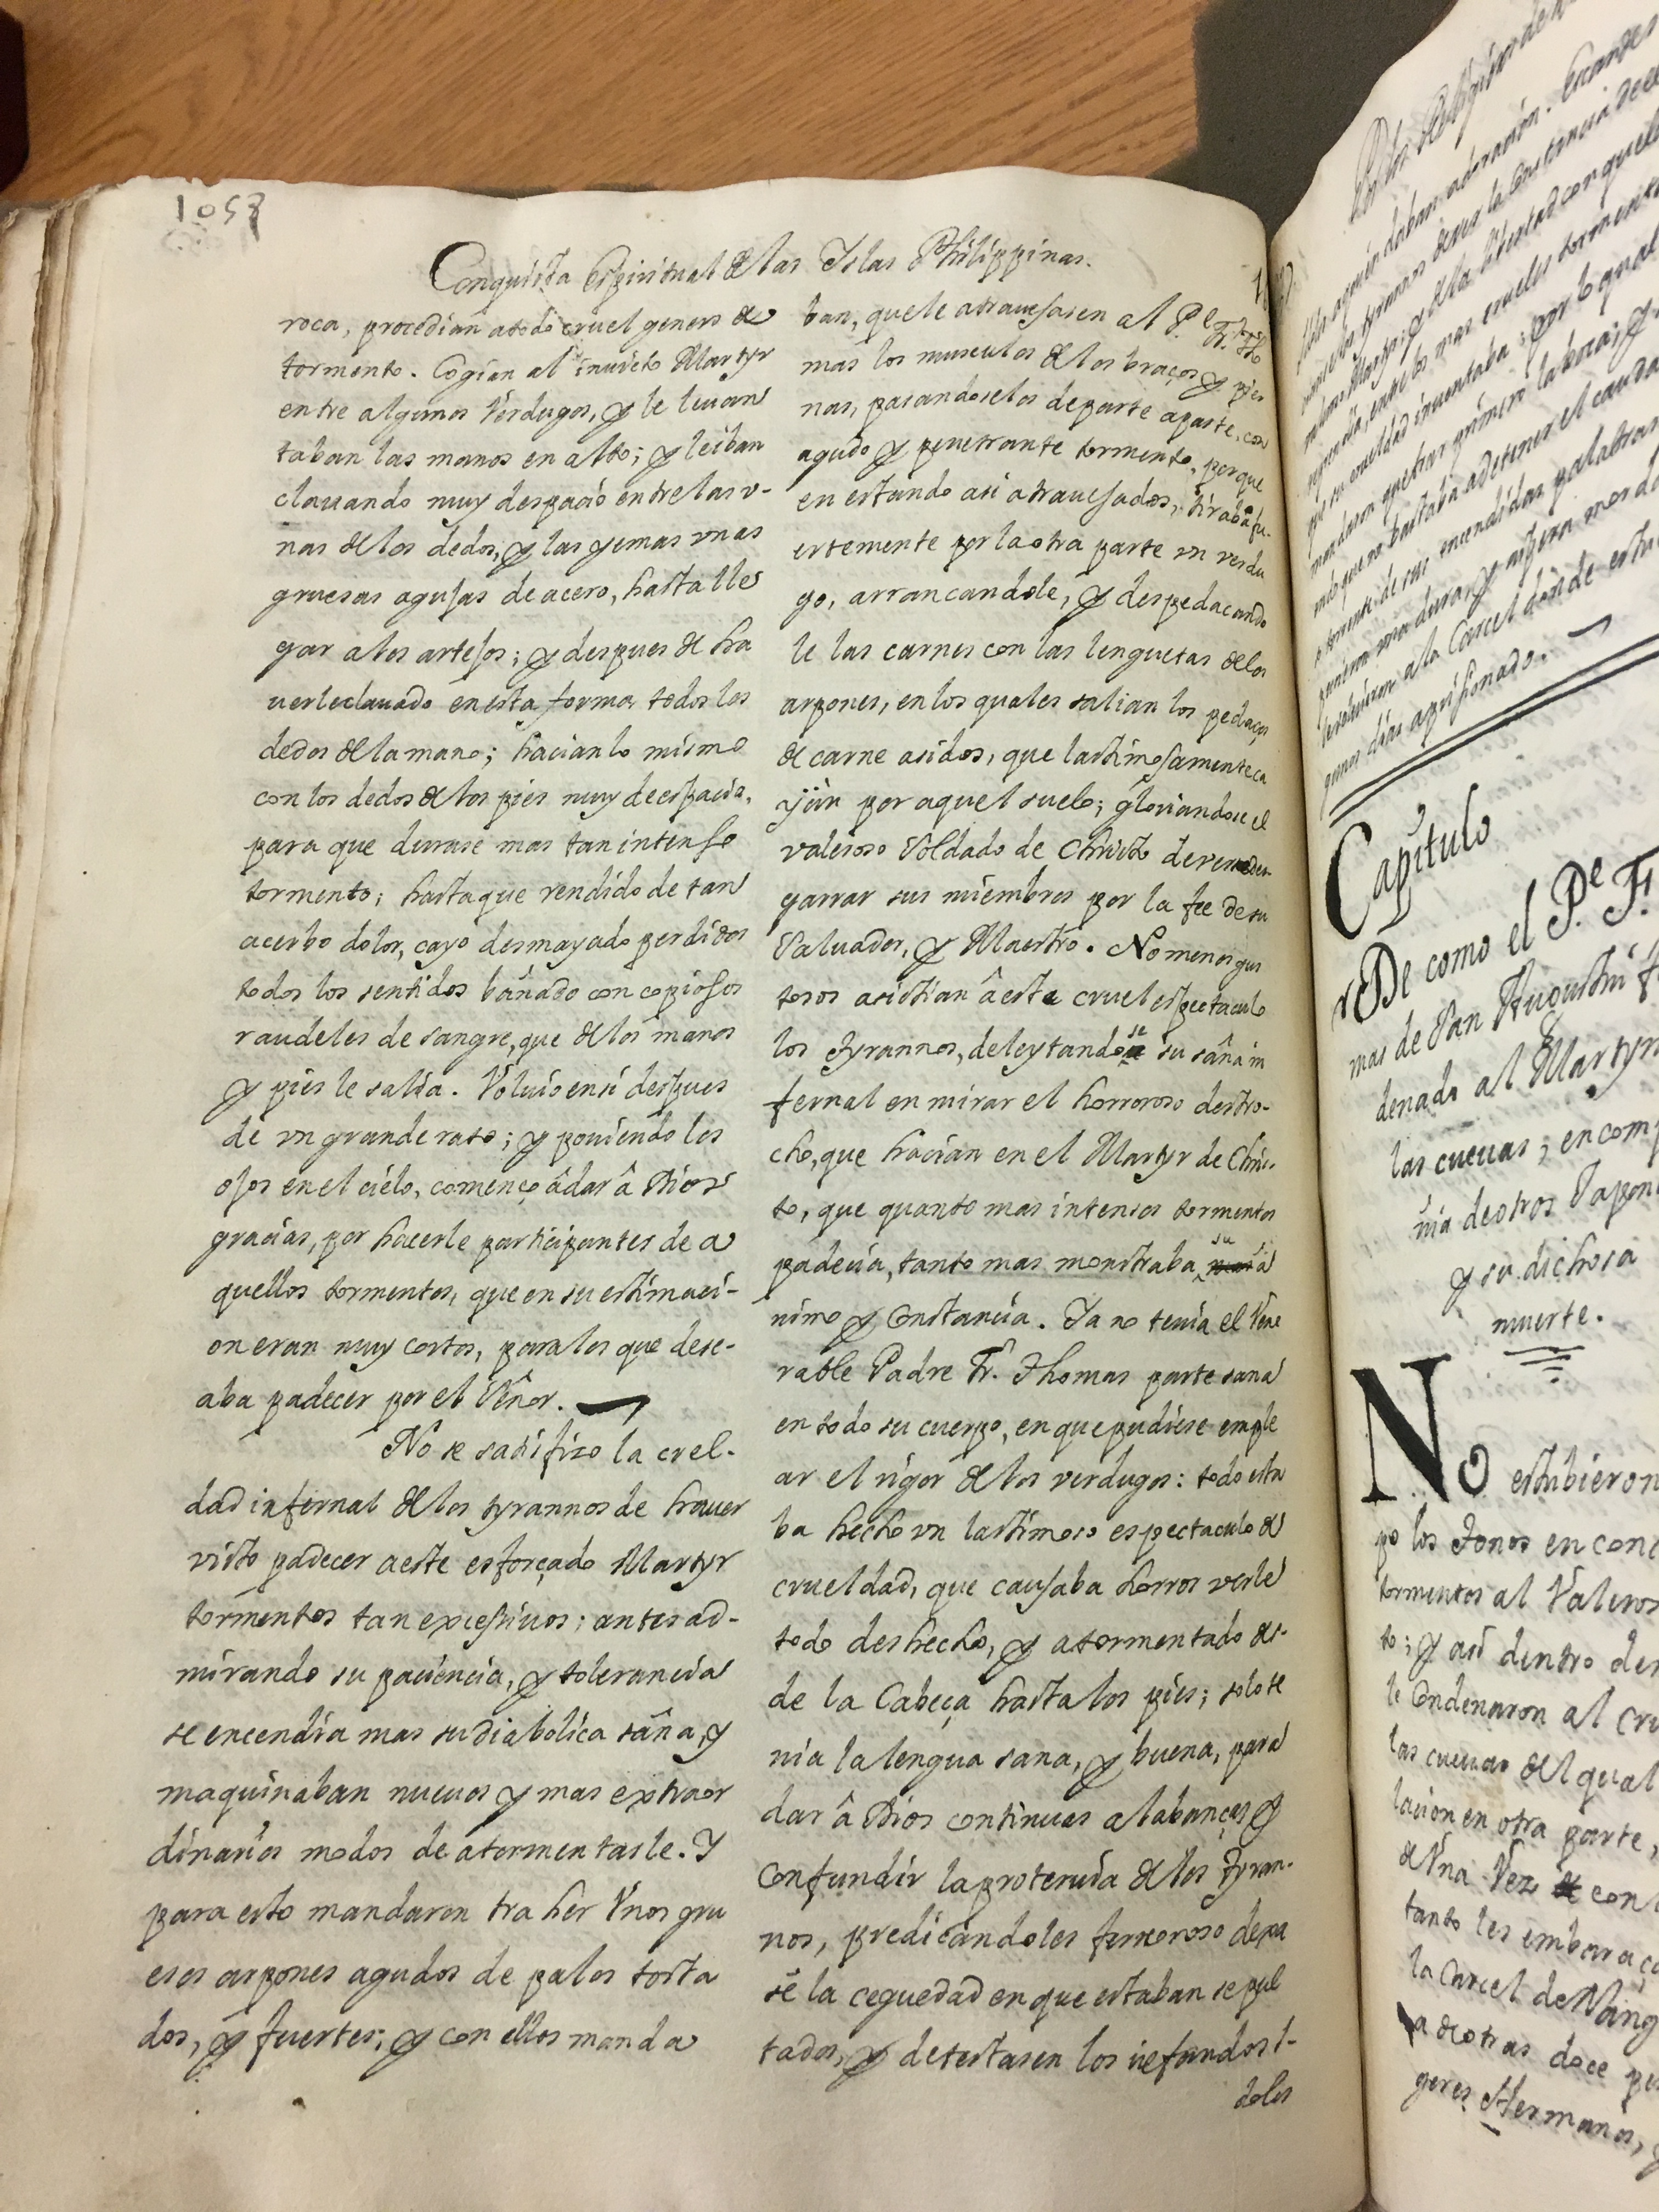 1053
Conquista Espiritual de las Yslas Philippinas.
roca, procedian a todo cruel genero de
tormento. Cogian al inuicto Martyr
entre algunos Verdugos, y le leuan
taban las manos en alto; y le iban
clauando muy despacio entre las v-
ñas de los dedos, y las yemas vnas
gruesas agujas de acero, hasta lle
gar a los artejos; y despues de ha
uerle clauado en esta forma todos los
dedos de la mano; hacian lo mismo
con los dedos de los pies muy de espacio,
para que durase mas tan intenso
tormento; hasta que rendido de tan
acerbo dolor, cayo desmayado perdidos
todos los sentidos bañado con copiosos
raudeles de sangre, que de los manos
y pies le salia. Voluio en si despues
de vn grande rato; y poniendo los
ojos en el cielo, començo â dar â Dios
gracias, por hacerle participantes de a
quellos tormentos, que en su estimaci-
on eran muy cortos, para los que dese-
aba padecer por el Señor.
No se satisfizo la crel-
dad infernal de los tyrannos de hauer
visto padecer a este esforçado Martyr
tormentos tan excessiuos; antes ad-
mirando su paciencia, y tolerancia
se encendia mas su diabolica saña, y
maquinaban nueuos y mas extraor
dinarios modos de atormentarle. Y
para esto mandaron traher Vnos gru
esos arpones agudos de palos tosta
dos, y fuertes; y con ellos manda
ban, que le atrauesasen al Pe. Fr. Tho
mas los musculos de los braços y pier
nas, pasandoselos de parte a parte, con
agudo y penetrante tormento, porque
en estando asi atrauesados, tiraba fu-
ertemente por la otra parte vn verdu
go, arrancandole, y despedacando
le las carnes con las lenguetas de los
arpones, en los quales salian los pedaços
de carne asidos, que lastimosamente ca
yan por aquel suelo; gloriandose el
valeroso Soldado de Christo de ver des-
garrar sus miembros por la fee de su
Saluador, y Maestro. No menos gus
tosos asistian â este cruel espectaculo
los Tyrannos, deleytandose su saña in
fernal en mirar el horroroso destro-
cho, que hacian en el Martyr de Chris-
to, que quanto mas intensos tormentos
padecia, tanto mas monstraba su a
nimo y Constancia. Ya no tenia el Vene
rable Padre Fr. Thomas parte sana
en todo su cuerpo, en que pudiese emple
ar el rigor de los verdugos: todo esta
ba hecho vn lastimoso espectaculo de
crueldad, que causaba horror verle
todo deshecho, y atormentado des-
de la Cabeça hasta los pies; solo te
nia la lengua sana, y buena, para
dar â Dios continuas alabanças y
confundir la proteruia de los Tyran-
nos, predicandoles feruoroso dexa
sē la ceguedad en que estaban sepul
tados, y detestasen los nefandos I-
doles
Capitulo
De como el Pe. F.
mas de San Augustin f
denado al Martyr
las cueuas; en comp
ñia de otros Japon
y su dichosa
muerte.
No estubieron
po los Tonos en conc
tormentos al Valeros
to; y asi dentro de
le Condenaron al cru
las cueuas del qual
lacion en otra parte,
de Vna Vez con
tanto les embaraça
la Carcel de Nang
a otras doce pe
geres Hermanas,